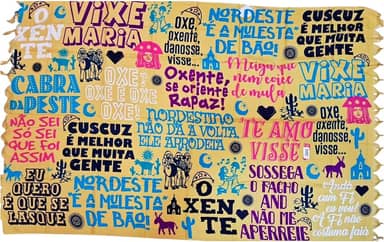 O
XEN
TE
VIXE
MARIA
OXE,
OXENTE,
DANOSSE,
VISSE...
NORDESTE
É A MULESTA
DE BÃO!
CUSCUZ
É MELHOR
QUE MUITA
GENTE
CABRA
DA PESTE
OXE!
OXE É OXE
OXE!
Oxente,
se oriente
Rapaz!
Meiga que
nem coice
de mula
VIXE
MARIA
NÃO SEI
SÓ SEI
QUE FOI
ASSIM
CUSCUZ
É MELHOR
QUE MUITA
GENTE
NORDESTINO
NÃO DÁ A VOLTA,
ELE ARRODEIA
TE AMO
VISSE
OXE,
OXENTE,
DANOSSE,
VISSE...
EU
QUERO
É QUE SE
LASQUE
NORDESTE
É A MULESTA
DE BÃO!
O
XEN
TE
SOSSEGA
O FACHO
AND
NÃO ME
APERREIE
Andá
com Fé
eu vou
a Fé não
costuma faiá